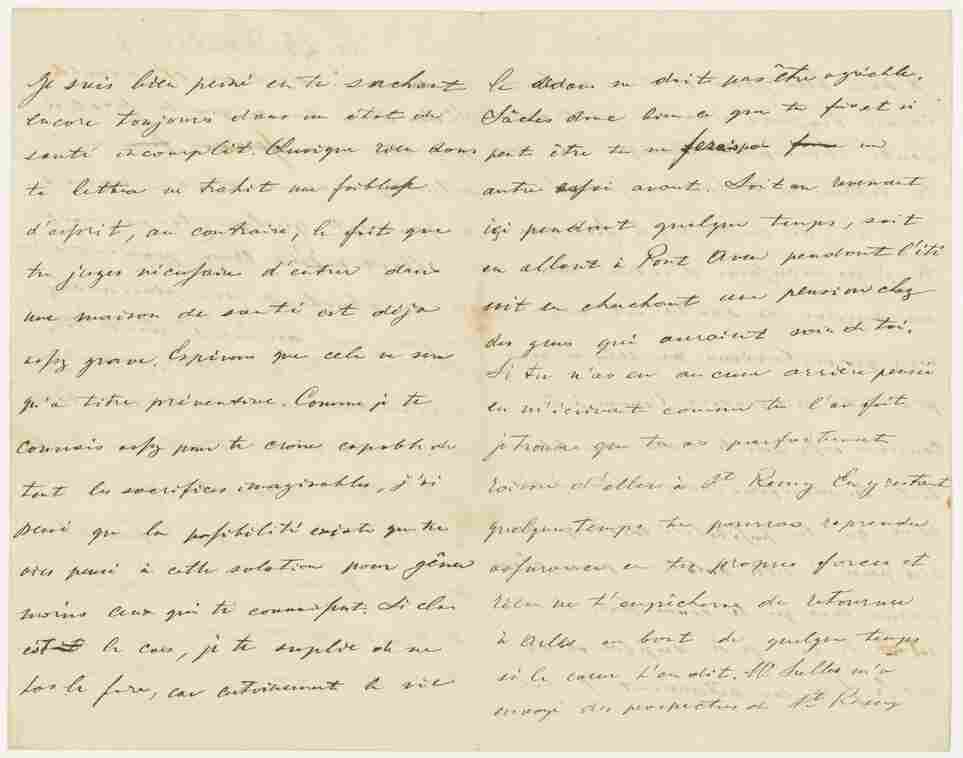 Je suis bien peiné en te sachant
encore toujours dans un état de
santé incomplèt. Quoique rien dans
ta lettre ne trahit une faiblesse
d'esprit, au contraire, le fait que
tu juges nécessaire d'entrer dans
une maison de santé est déjà
assez grave. Espérons que cela ne sera
qu'à titre préventive. Comme je te
connais assez pour te croire capable de
tout les sacrifices imaginables, j'ai
pensé que la possibilité existe que tu
aies pensé à cette solution pour gêner
moins ceux qui te connaissent. Si cela
était le cas, je te supplie de ne
pas le faire, car certainement la vie
là dedans ne doit pas être agréable.
Tâches donc bien ce que tu fais et si
peut être tu ne ferais pas un
autre essai avant. Soit en revenant
içi pendant quelque temps, soit
en allant à Pont Aven pendant l'été
soit en cherchant une pension chez
des gens qui auraient soin de toi.
Si tu n'as eu aucune arrière pensée
en m'écrivant comme tu l'as fait
je trouve que tu as parfaitement
raison d'aller à St Remy. En y restant
quelque temps tu pourras reprendre
assurance en tes propres forces et
rien ne t'empêchera de retourner
à Arles au bout de quelque temps
si le cœur t'en dit. Mr Salles m'a
envoyé des prospectus de St Remy